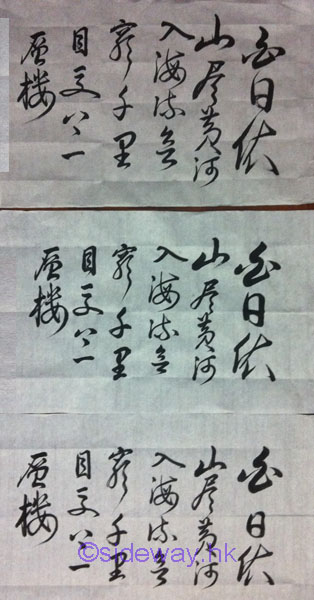 白日依
山尽黄河
入海流欲
窮千里
目更上一
層楼
白日依
山尽黄河
入海流欲
窮千里
目更上一
層楼
白日依
山尽黄河
入海流欲
窮千里
目更上一
層楼
©sideway.hk